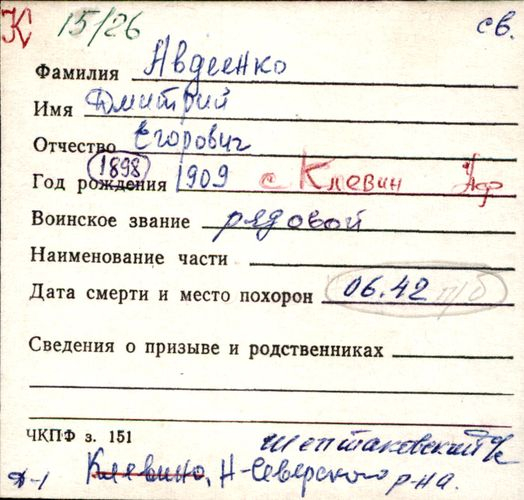 К 15/26 св.
Фамилия Авдеенко
Имя Дмитрий
Отчество Егорович
1898
Год рождения 1909 с Клевин
Воинское звание рядовой
Наименование части
Дата смерти и место похорон 06.42 п/б
Сведения о призыве и родственниках
ЧКПФ з. 151 Шептаковский
Д-1 Клевино, Н-Северского р-на.